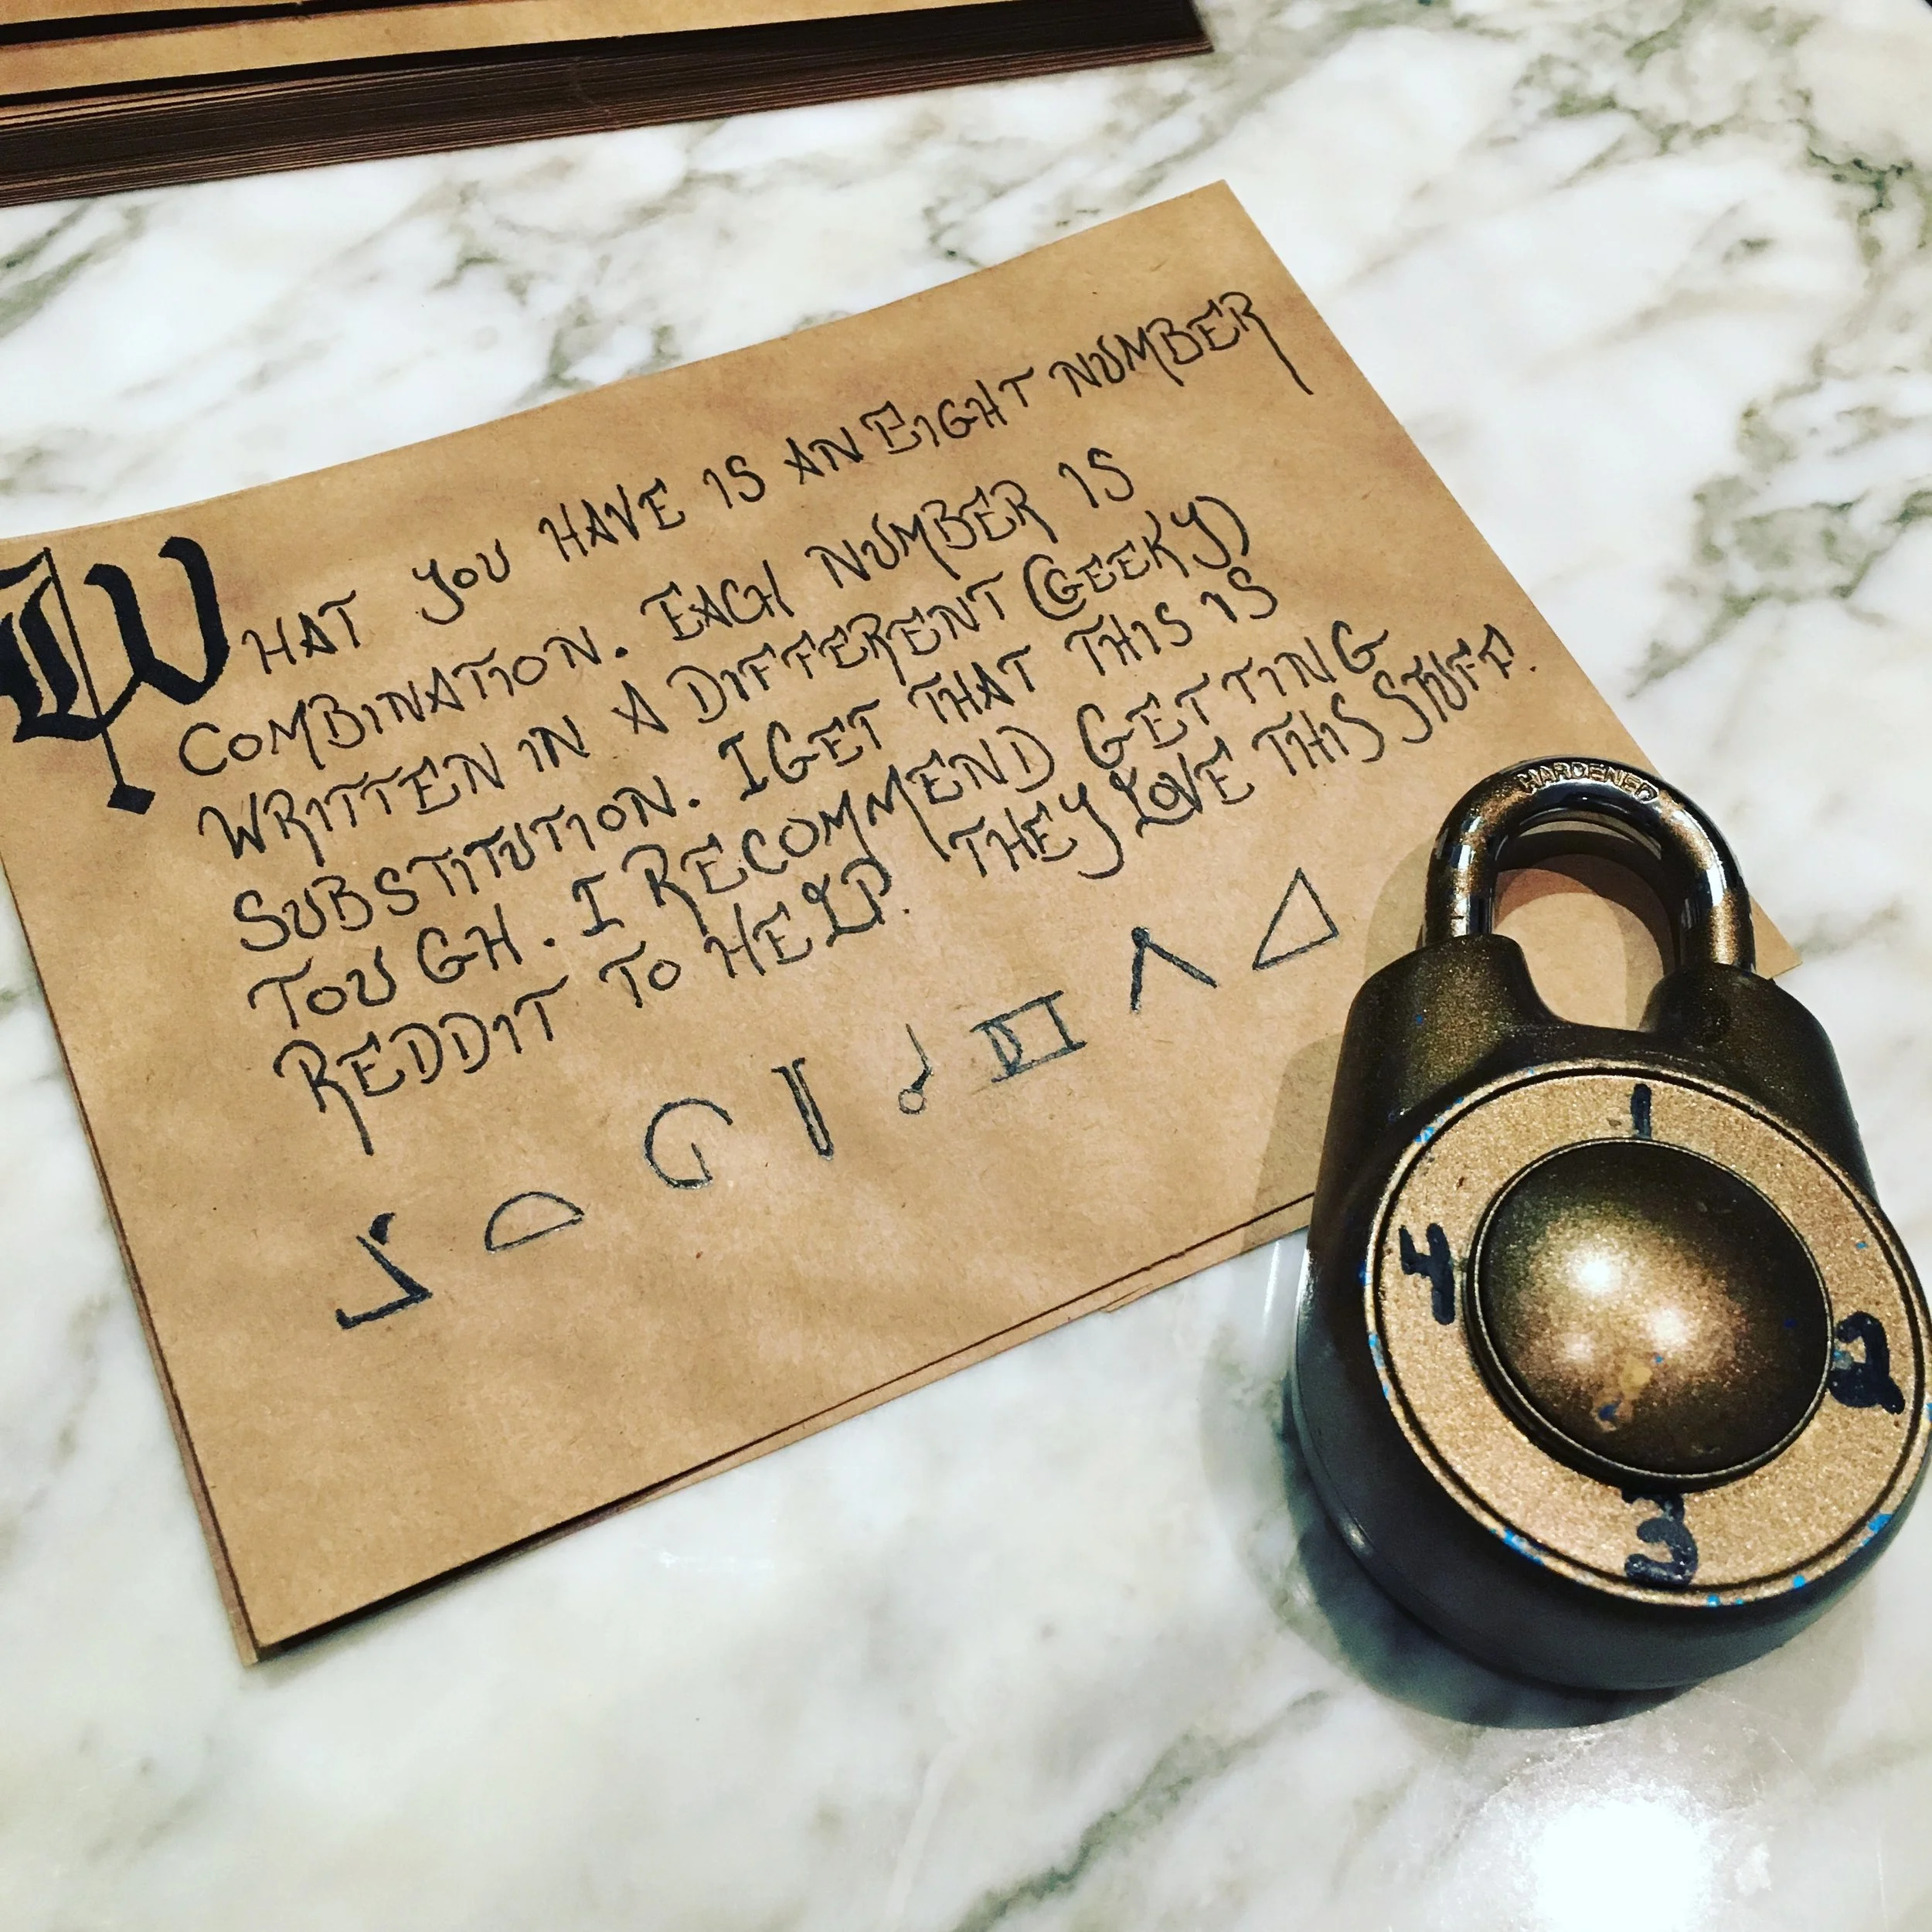 WHAT YOU HAVE IS AN EIGHT NUMBER
COMBINATION. EACH NUMBER IS
WRITTEN IN A DIFFERENT (GEEKY)
SUBSTITUTION. I GET THAT THIS IS
TOUGH. I RECOMMEND GETTING
REDDIT TO HELP. THEY LOVE THIS STUFF.
HARDENED
1
4
2
3